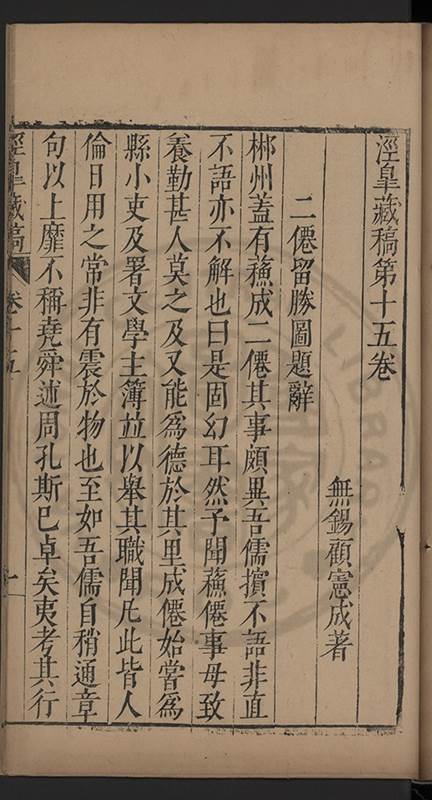 涇臯藏稿第十五卷
無錫顧憲成著
二僊留勝圖題辭
郴州蓋有蘓成二僊其事頗異吾儒擯不語非直
不語亦不解也曰是固幻耳然予聞蘓僊事母致
養勤甚人莫之及又能爲德於其里成僊始嘗爲
縣小吏及署文學主簿竝以舉其職聞凡此皆人
倫日用之常非有震於物也至如吾儒自稍通章
句以上靡不稱堯舜述周孔斯已卓矣夷考其行
涇臯藏稿
卷十五
一